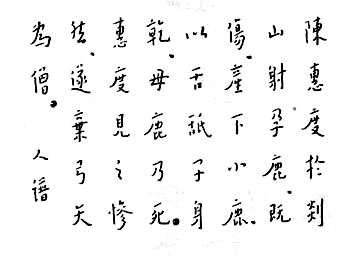 陳惠度於剡
山射孕鹿、既
傷、產下小鹿、
以舌舐子身
乾、母鹿乃死。
惠度見之慘
然、遂棄弓矢
為僧。人譜